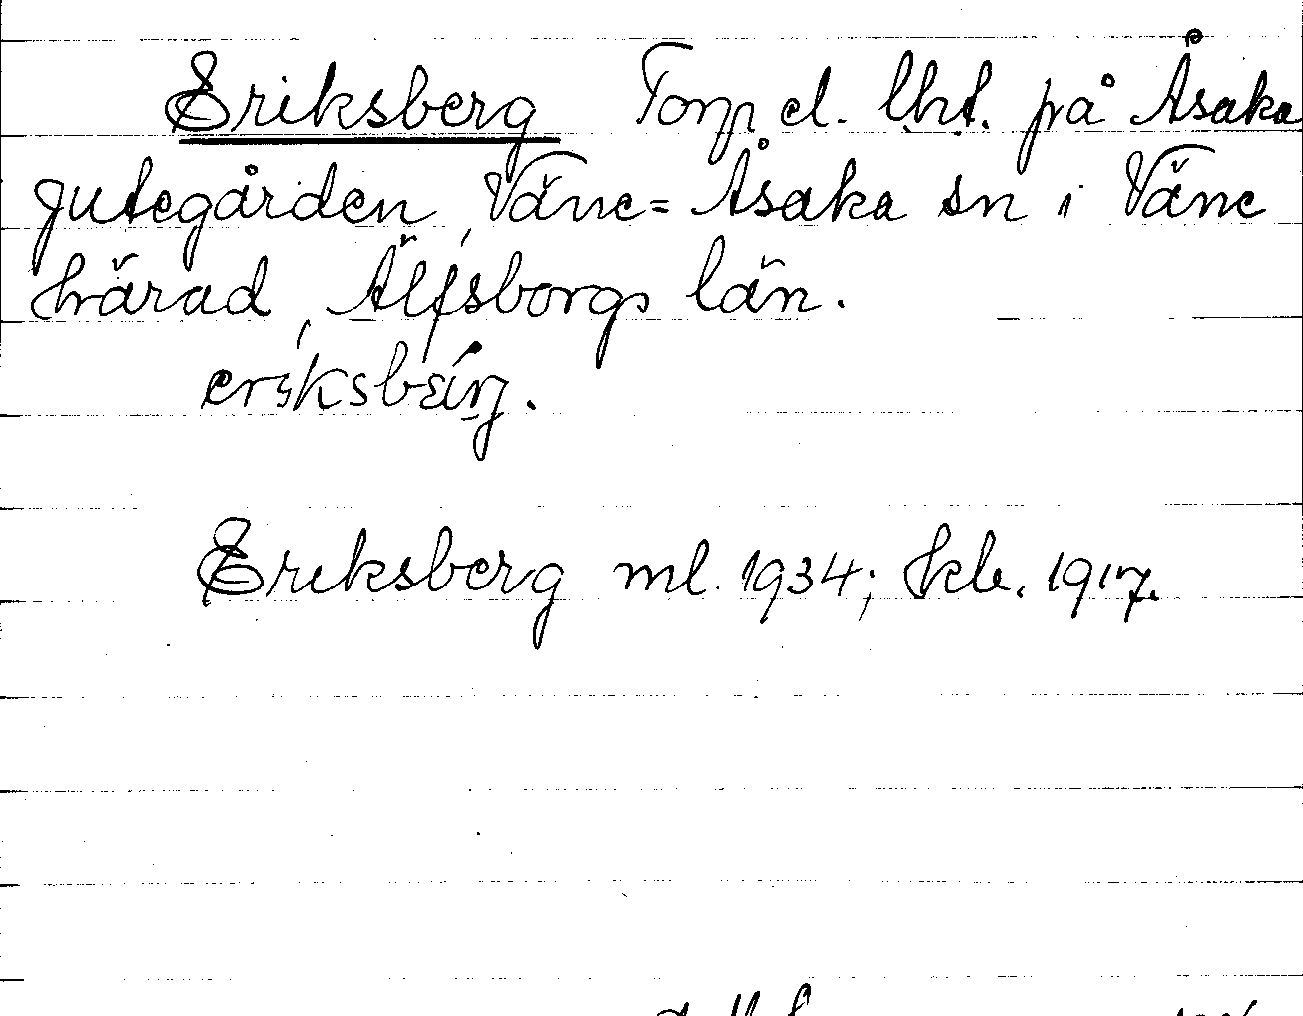 Eriksberg Torp el. lht. på Åsaka
Jutegården, Väne=Åsaka sn i Väne
härad, Älfsborgs län.
Eriksberg ml. 1934; Skb. 1917.